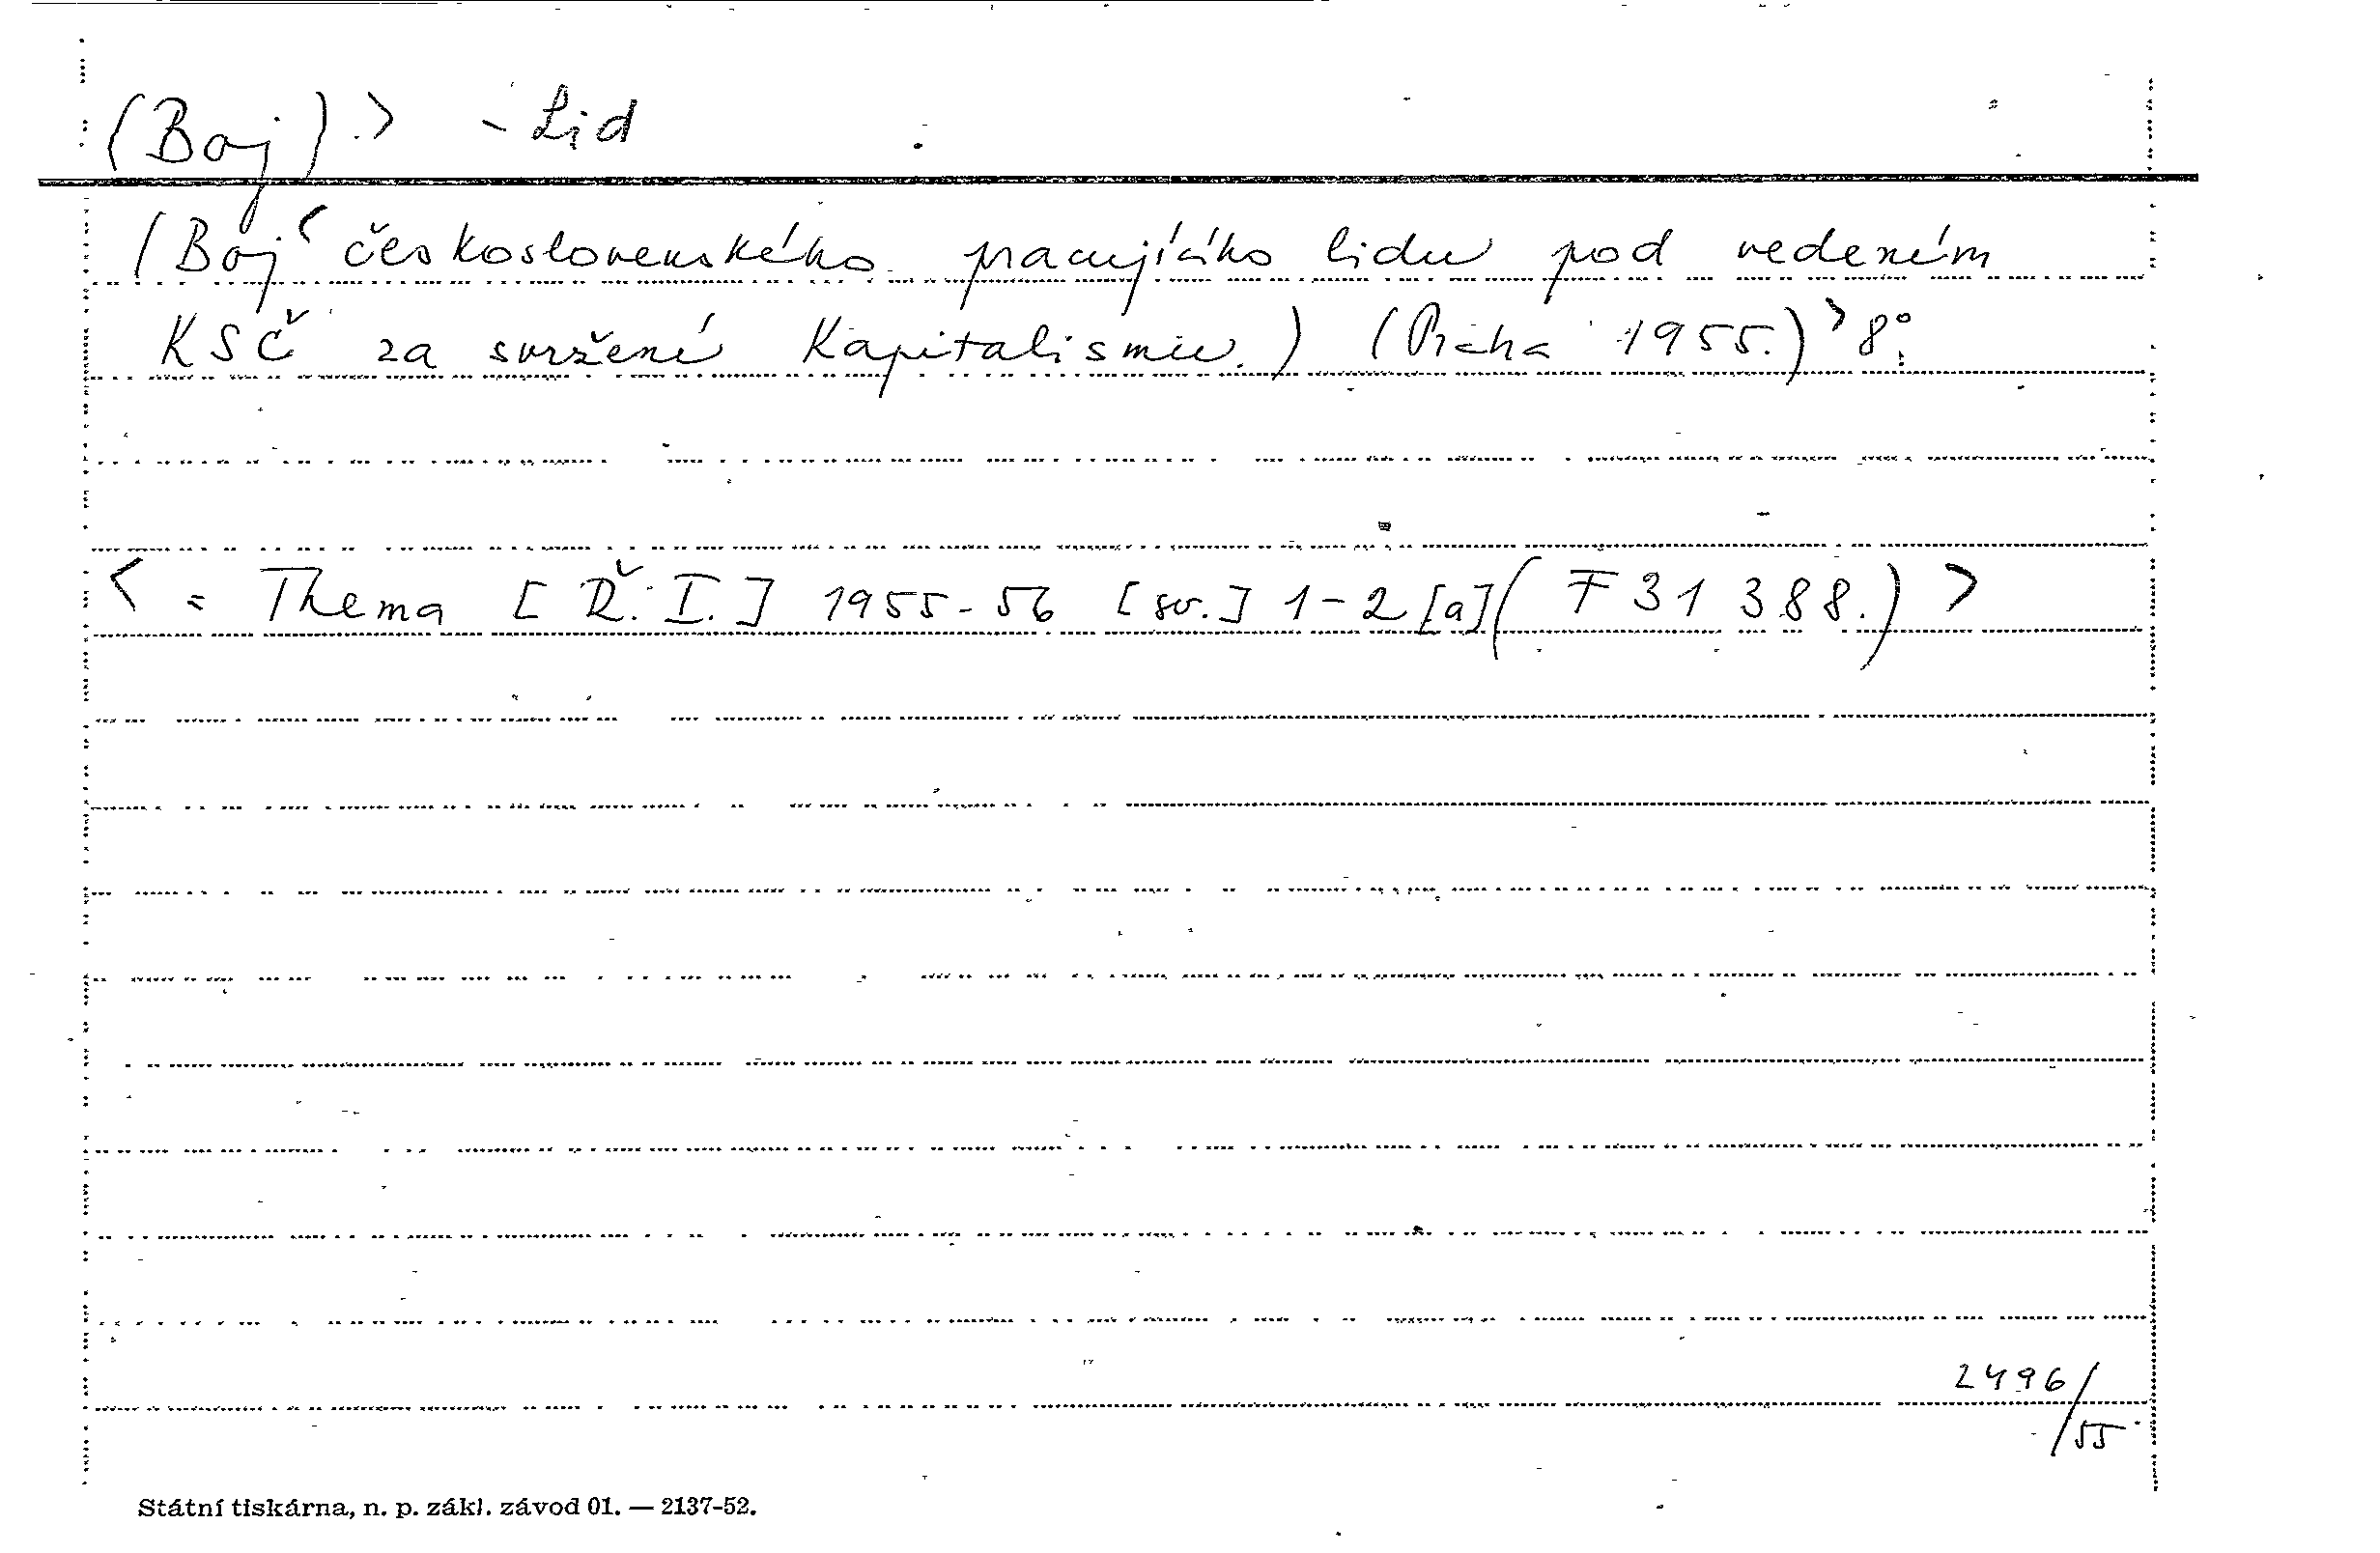 (Boj) > - Lid
(Boj < československého pracujícího lidu pod vedením
KSČ za svržení kapitalismu.) (Praha 1955.) > 8°.
< = Thema [Ř. I.] 1955-56 [sv.] 1-2 [a] (F 31 388.) >
2496/
55
Státní tiskárna, n. p. zákl. závod 01. — 2137-52.